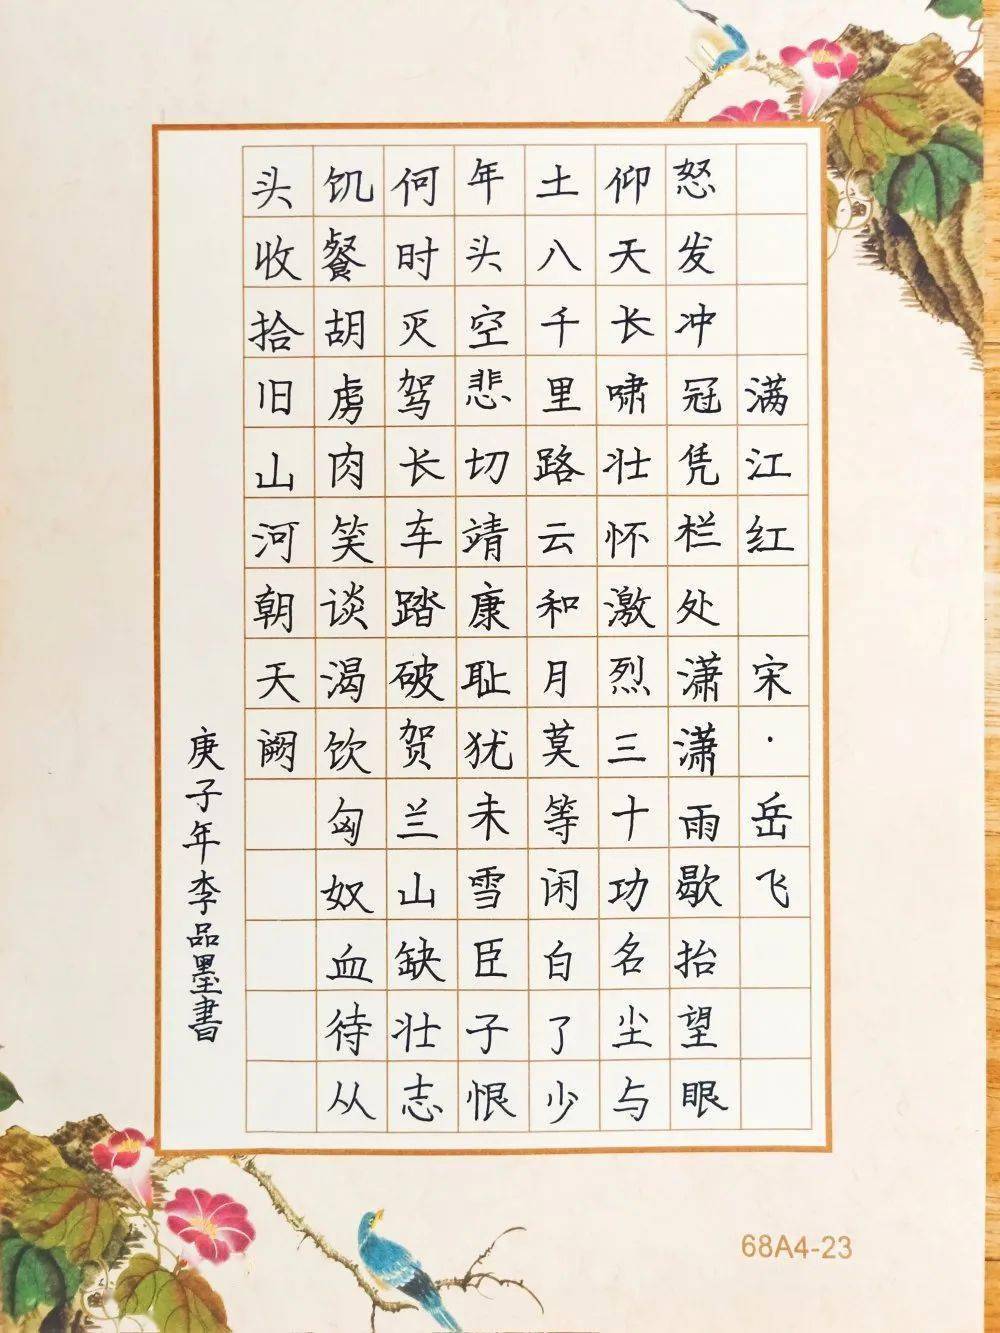 满江红 宋·岳飞
怒发冲冠凭栏处潇潇雨歇抬望眼
仰天长啸壮怀激烈三十功名尘与
土八千里路云和月莫等闲白了少
年头空悲切靖康耻犹未雪臣子恨
何时灭驾长车踏破贺兰山缺壮志
饥餐胡虏肉笑谈渴饮匈奴血待从
头收拾旧山河朝天阙
庚子年李品墨書
68A4-23